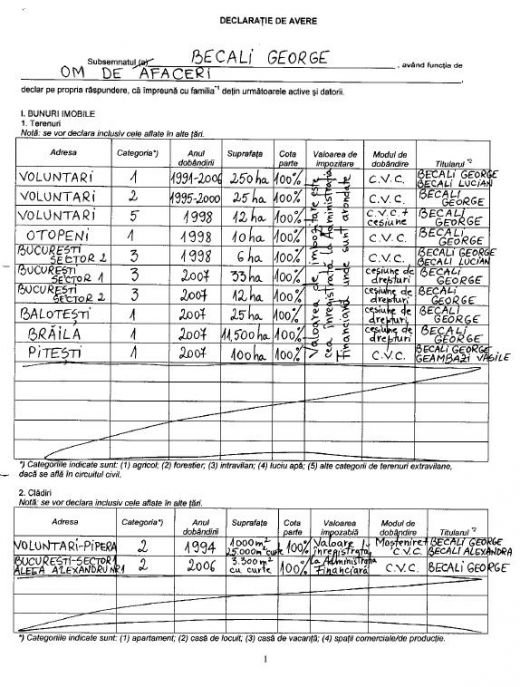 DECLARAȚIE DE AVERE
Subsemnatul (a) BECALI GEORGE , având funcția de
OM DE AFACERI ,
declar pe propria răspundere, că împreună cu familia*1 dețin următoarele active și datorii.
I. BUNURI IMOBILE
1. Terenuri
Notă: se vor declara inclusiv cele aflate în alte țări.
Adresa Categoria*) Anul dobândirii Suprafața Cota parte Valoarea de impozitare Modul de dobândire Titularul *2
VOLUNTARI 1 1991-2006 250 ha 100% C.V.C. BECALI GEORGE BECALI LUCIAN
VOLUNTARI 2 1995-2000 25 ha 100% C.V.C. BECALI GEORGE
VOLUNTARI 5 1998 12 ha 100% C.V.C + cesiune BECALI GEORGE
OTOPENI 1 1998 10 ha 100% C.V.C. BECALI GEORGE
BUCUREȘTI SECTOR 2 3 1998 6 ha 100% C.V.C. BECALI GEORGE BECALI LUCIAN
BUCUREȘTI SECTOR 1 3 2007 33 ha 100% cesiune de drepturi BECALI GEORGE
BUCUREȘTI SECTOR 2 3 2007 12 ha 100% cesiune de drepturi BECALI GEORGE
BALOTEȘTI 1 2007 25 ha 100% cesiune de drepturi BECALI GEORGE
BRĂILA 1 2007 11,500 ha 100% cesiune de drepturi BECALI GEORGE
PITEȘTI 1 2007 100 ha 100% C.V.C. BECALI GEORGE GEAMBAZI VASILE
Valoarea de impozitare este
cea înregistrată la Administrația
Financiară unde sunt arondate
*) Categoriile indicate sunt: (1) agricol; (2) forestier; (3) intravilan; (4) luciu apă; (5) alte categorii de terenuri extravilane,
dacă se află în circuitul civil.
2. Clădiri
Notă: se vor declara inclusiv cele aflate în alte țări.
Adresa Categoria*) Anul dobândirii Suprafața Cota parte Valoarea impozabilă Modul de dobândire Titularul *2
VOLUNTARI-PIPERA 2 1994 1000 m² 25000 m² curte 100% Valoare înregistrată Moștenire + C.V.C. BECALI GEORGE BECALI ALEXANDRA
BUCUREȘTI-SECTOR 1 ALEEA ALEXANDRU NR 1 2 2006 3.300 m² cu curte 100% la Administrația Financiară C.V.C. BECALI GEORGE
*) Categoriile indicate sunt: (1) apartament; (2) casă de locuit; (3) casă de vacanță; (4) spații comerciale/de producție.
1